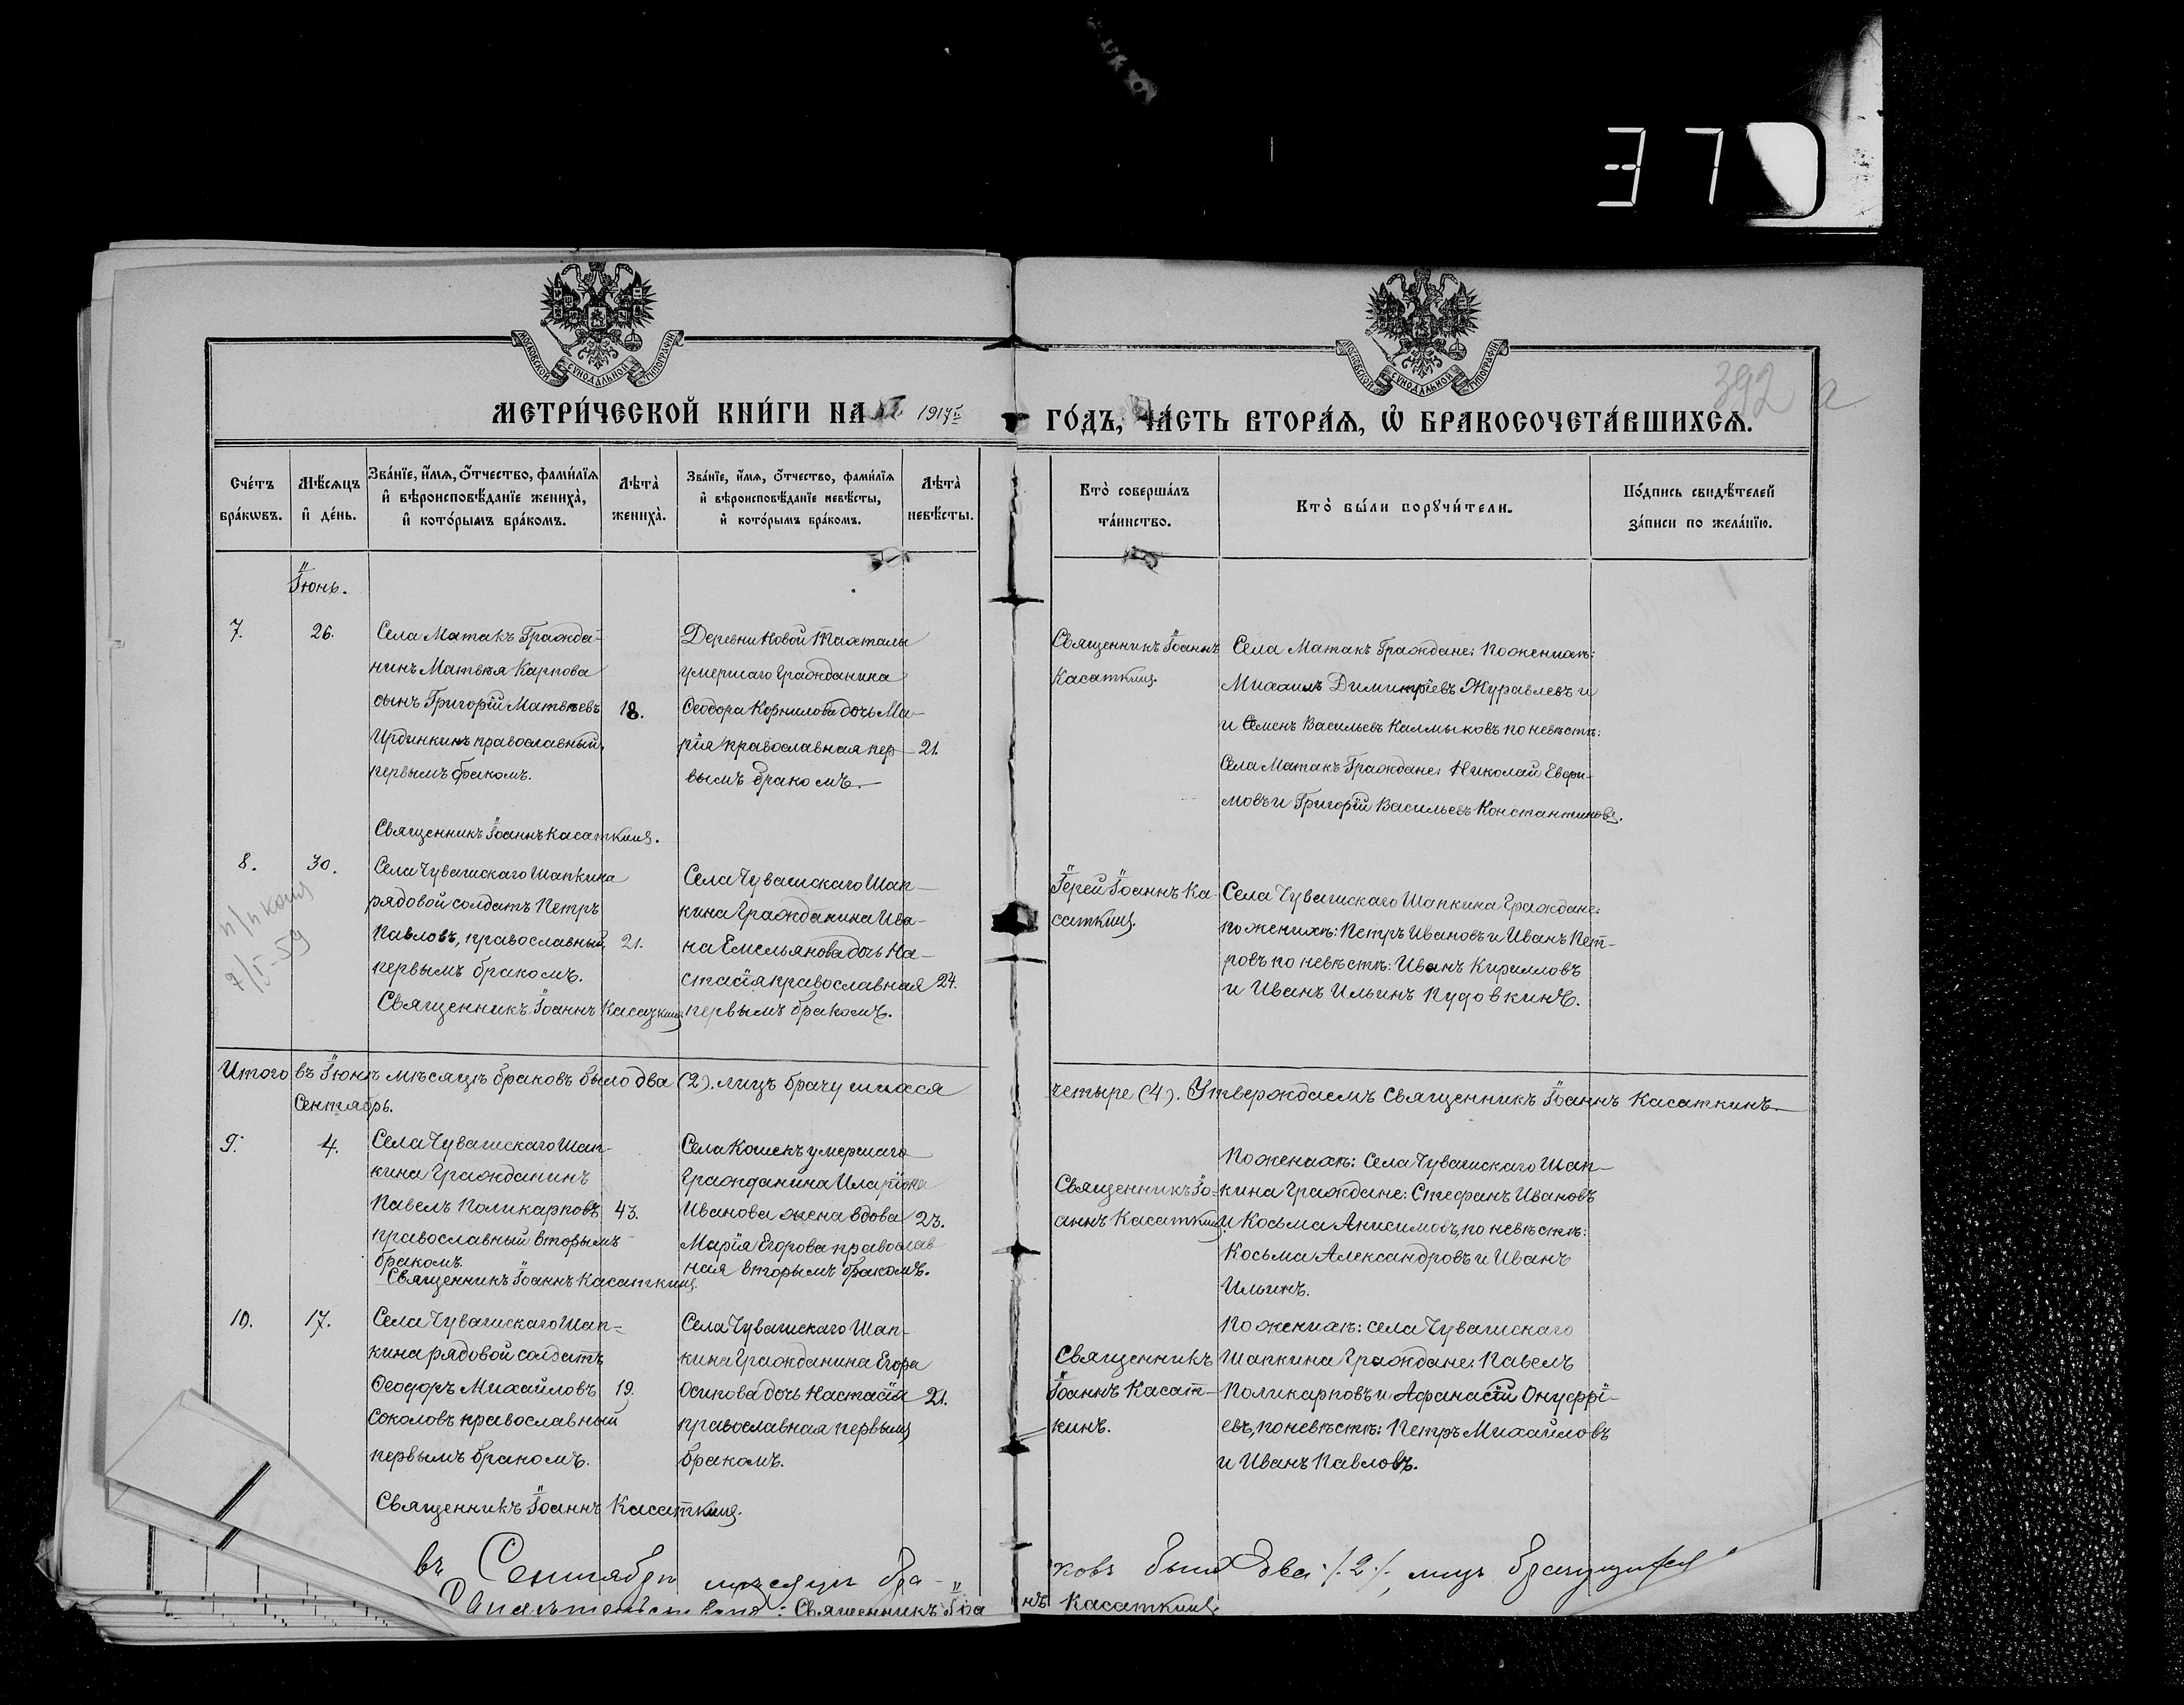 37
МОСКОВСКОЙ СѴНОДАЛЬНОЙ ТИПОГРАФІИ
МОСКОВСКОЙ СѴНОДАЛЬНОЙ ТИПОГРАФІИ
392 а
МЕТРИ́ЧЕСКОЙ КНИ́ГИ НА 1917й
ГО́ДЪ, ЧА́СТЬ ВТОРА́Я, Ѡ҆ БРАКОСОЧЕТА́ВШИХСЯ.
Сче́тъ бра́кѡвъ.
Мѣ́сяцъ и҆ де́нь.
Зва́нїе, и҆́мя, ѻ҆́тчество, фами́лїя
и҆ вѣроисповѣ́данїе жениха̀,
и҆ кото́рымъ бра́комъ.
Лѣта̀ жениха̀.
Зва́нїе, и҆́мя, ѻ҆́тчество, фами́лїя
и҆ вѣроисповѣ́данїе невѣ́сты,
и҆ кото́рымъ бра́комъ.
Лѣта̀ невѣ́сты.
Кто̀ соверша́лъ
та́инство.
Кто̀ бы́ли порꙋчи́тели.
По́дпись свидѣ́телей
за́писи по жела́нїю.
Іюнь.
7.
26.
Села Матакъ Гражда-
нинъ Матвѣя Карпова
сынъ Григорій Матвѣевъ
Ирдинкинъ православный,
первымъ бракомъ.
18.
Деревни Новой Тахталы
умершаго Гражданина
Ѳеодора Корнилова дочь Ма-
рія православная пер-
вымъ бракомъ.
21.
Священникъ Іоаннъ
Касаткинъ.
Села Матакъ Граждане: по женихѣ:
Михаилъ Димитріевъ Журавлевъ и
и Семенъ Васильевъ Калмыковъ по невѣстѣ:
Села Матакъ Граждане: Николай Ефри-
мовъ и Григорій Васильевъ Константиновъ.
Священникъ Іоаннъ Касаткинъ.
8.
30.
п/п копия
7/I-59
Села Чувашскаго Шапкина
рядовой солдатъ Петръ
Павловъ, православный,
первымъ бракомъ.
21.
Священникъ Іоаннъ Касаткинъ
Села Чувашскаго Шап-
кина Гражданина Ива-
на Емельянова дочь На-
стасія православная
первымъ бракомъ.
24.
Іерей Іоаннъ Ка-
саткинъ.
Села Чувашскаго Шапкина Граждане:
по женихѣ: Петръ Ивановъ и Иванъ Пет-
ровъ по невѣстѣ: Иванъ Кирилловъ
и Иванъ Ильинъ Пудовкинъ.
Итого въ Іюнѣ мѣсяцѣ браковъ было два (2). лицъ брачущихся
четыре (4). Утверждаемъ Священникъ Іоаннъ Касаткинъ.
Сентябрь.
9.
4.
Села Чувашскаго Шап-
кина Гражданинъ
Павелъ Поликарповъ
православный вторымъ
бракомъ.
43.
Священникъ Іоаннъ Касаткинъ
Села Кошекъ умершаго
Гражданина Иларіона
Иванова жена вдова
Марія Егорова православ
ная вторымъ бракомъ.
23.
Священникъ Іо-
аннъ Касаткинъ.
По женихѣ: Села Чувашскаго Шап-
кина Граждане: Стефанъ Ивановъ
и Косьма Анисимовъ, по невѣстѣ:
Косьма Александровъ и Иванъ
Ильинъ.
10.
17.
Села Чувашскаго Шап-
кина рядовой солдатъ
Ѳеодоръ Михайловъ
Соколовъ православный
первымъ бракомъ.
19.
Села Чувашскаго Шап-
кина Гражданина Егора
Осипова дочь Настасія
православная первымъ
бракомъ.
21.
Священникъ
Іоаннъ Касат-
кинъ.
По женихѣ: села Чувашскаго
Шапкина Граждане: Павелъ
Поликарповъ и Афанасій Онуфрі-
евъ, по невѣстѣ: Петръ Михайловъ
и Иванъ Павловъ.
Священникъ Іоаннъ Касаткинъ.
въ Сентябрѣ мѣсяцѣ бра-
ковъ было два /2/, лицъ брачущихся
Священникъ Іоа
ннъ Касаткинъ